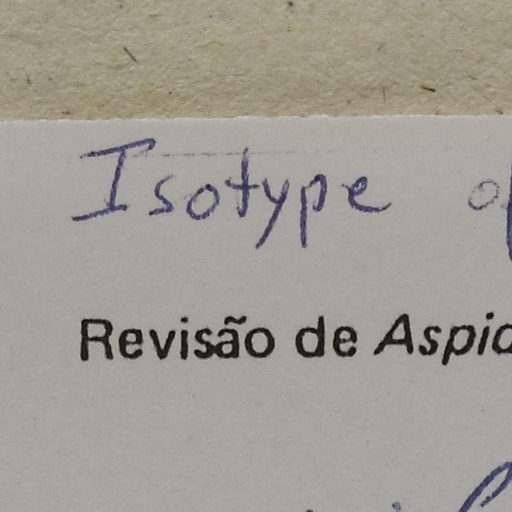 Isotype of
Revisão de Aspid